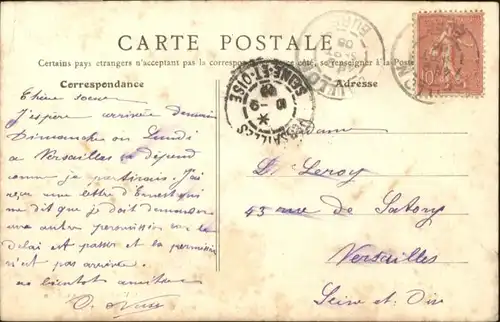 CARTE POSTALE
Certains pays etrangers n'acceptant pas la correspondance de ce côté, se renseigner à la Poste
Correspondance
Adresse
Chère soeur
J'espère arrivée demain
Dimanche ou Lundi
a Versailles sa dépend
comme je partirais. J'ai
reçue une lettre d'Ernest qui
me dit que je doit demander
une autre permission car le
délai est passer et la permission
n'est pas arrivée.
a bientot
Madame
D. Leroy
43 rue de Satory
Versailles
Seine et Oise
VERSAILLES
SEINE-ET-OISE
10